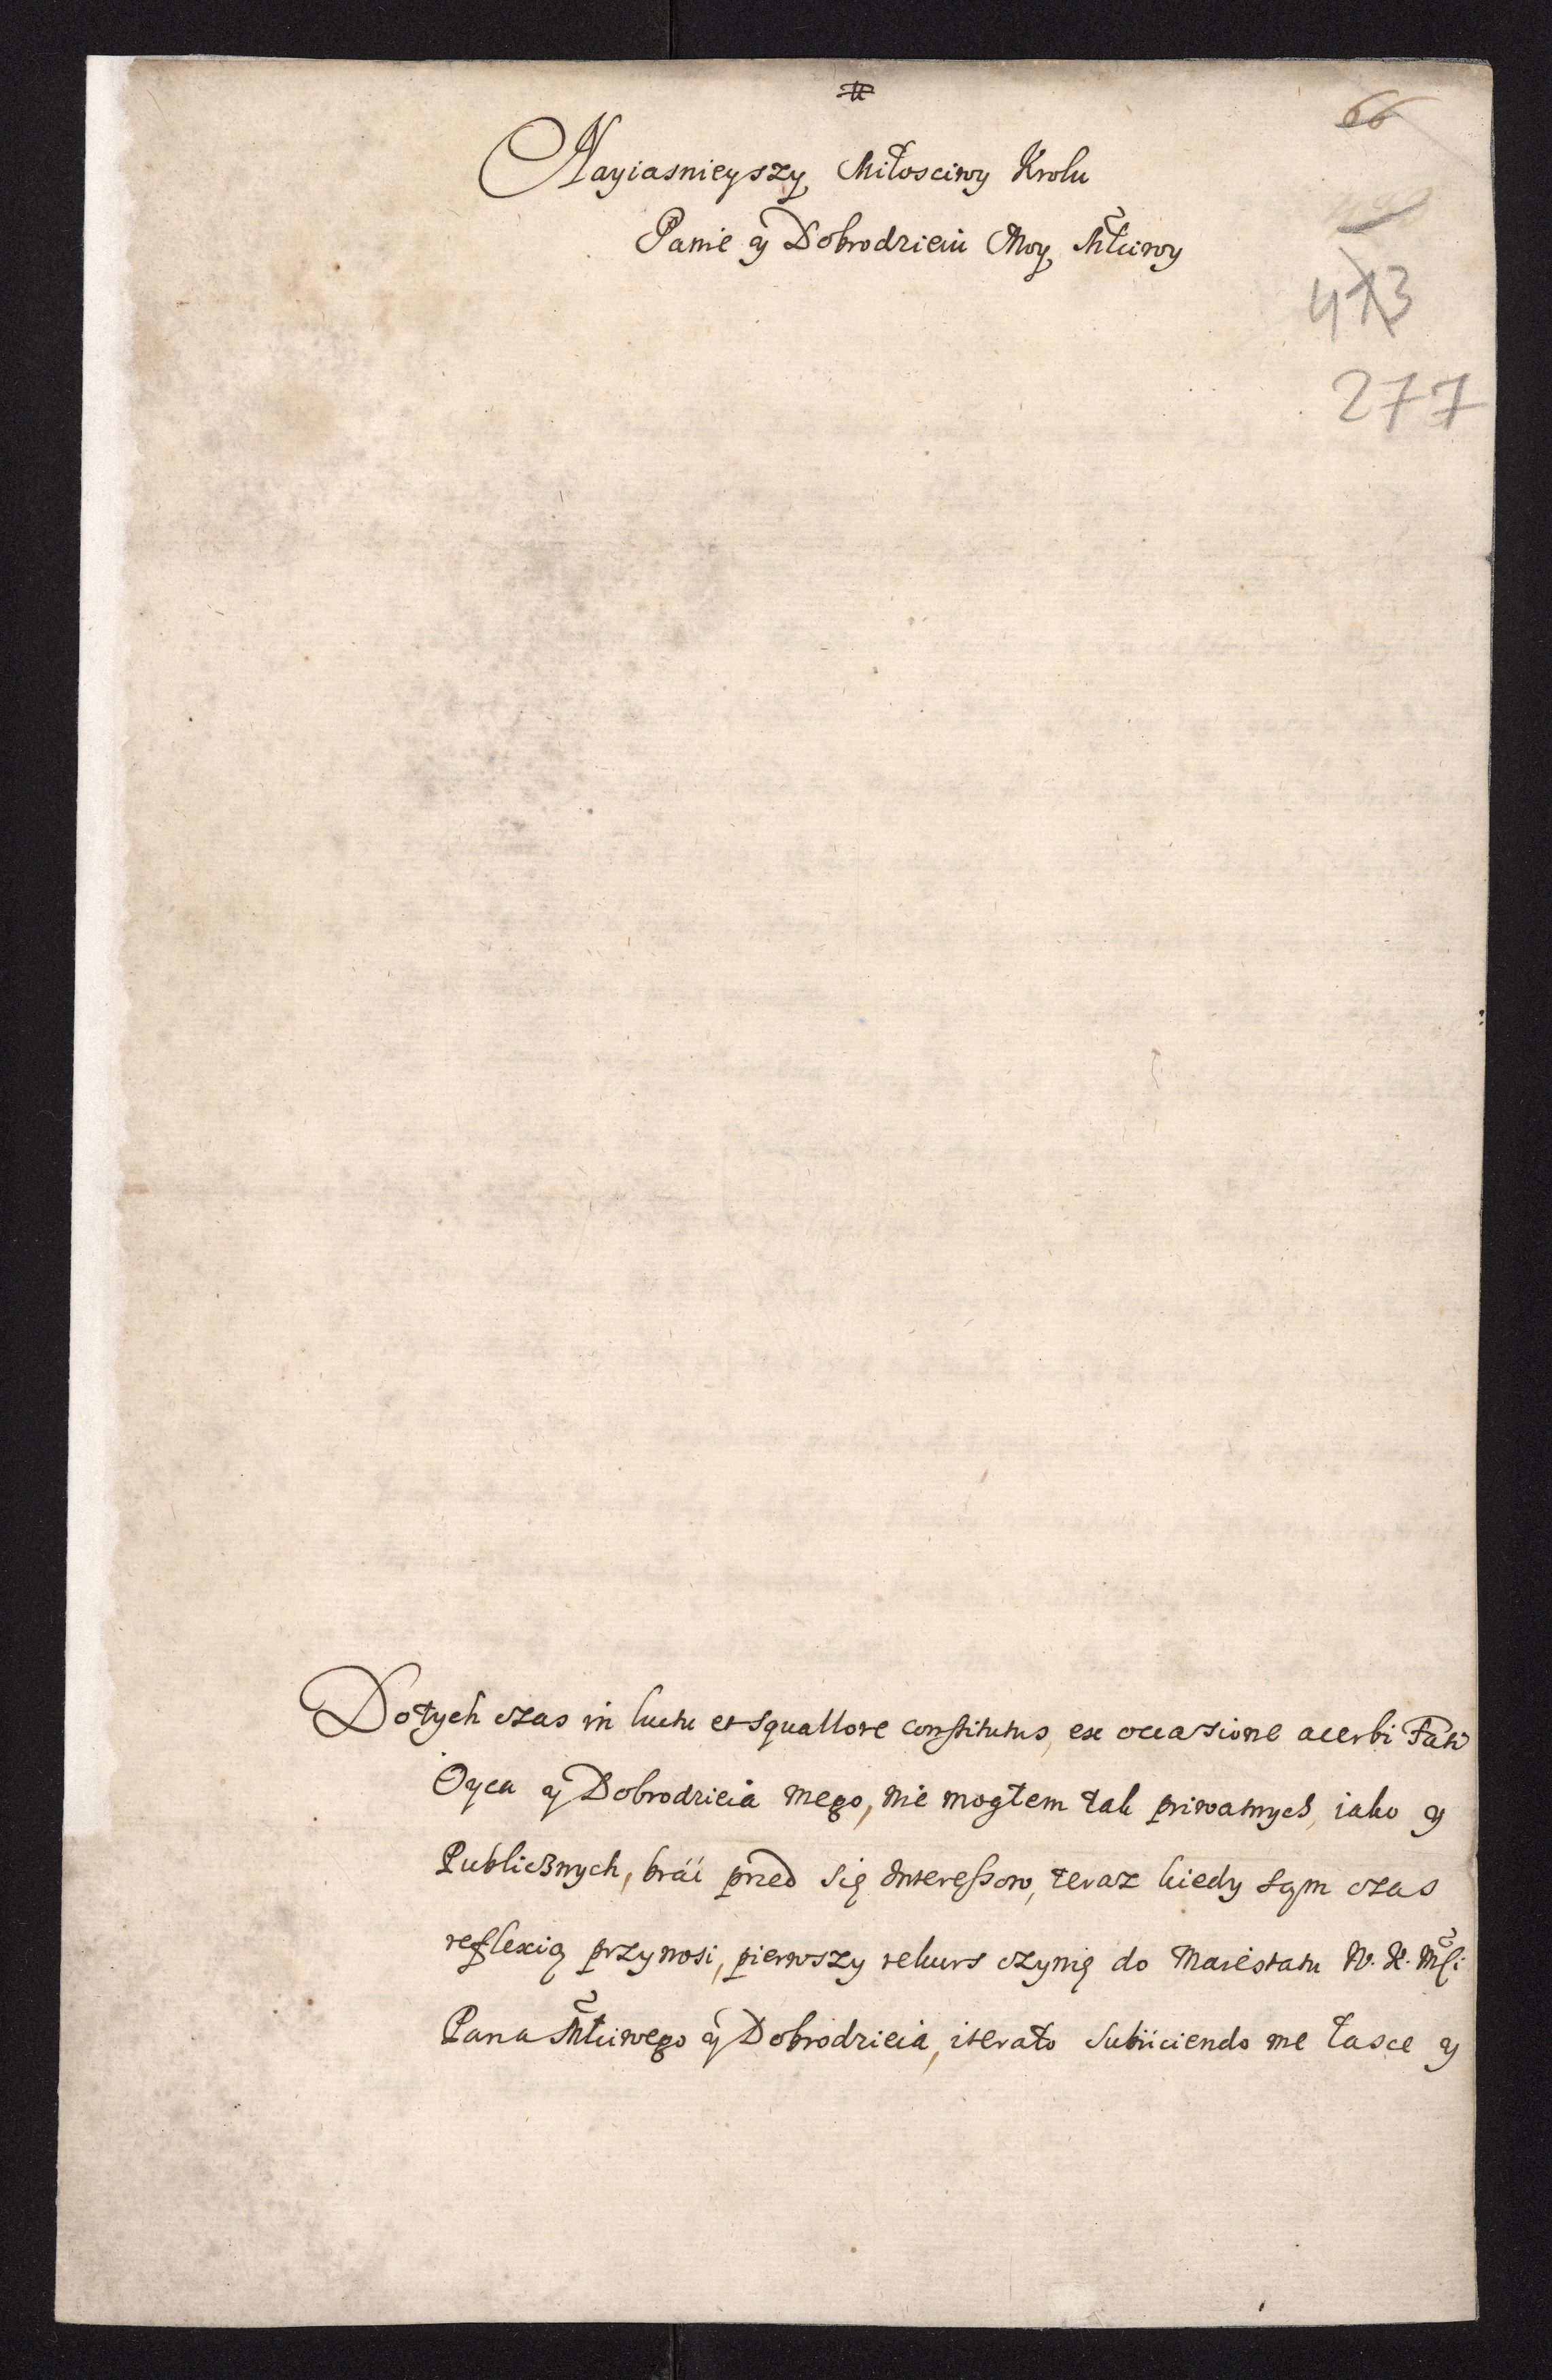 66
Nayiasnieyszy Miłosciwy Krolu
Panie y Dobrodzieiu Moy Młciwy
413
277
Dotych czas in luctu et squallore constitutus, ex occasione acerbi Fati
Oyca y Dobrodzieia mego, nie mogłem tak priwatnych, iako y
Publicznych, brać przed się Interessow, teraz kiedy sąm czas
reflexią przynosi, pierwszy rekurs czynię do Maiestatu W. K. Mści
Pana Młciwego y Dobrodzieia, iterato subiiciendo me łasce y